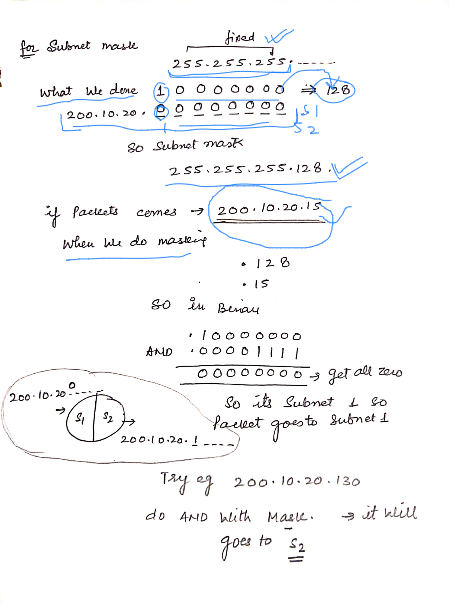 for Subnet mask
fixed
255.255.255. -----
What we done 1 0 0 0 0 0 0 0 ⇒ 128
200.10.20. 0 0 0 0 0 0 0 0 S1
S2
So Subnet mask
255.255.255.128.
if Packets comes → 200.10.20.15
When we do masking
. 128
. 15
SO in Binary
. 10000000
AND . 00001111
00000000 → get all zero
So its Subnet 1 so
Packet goes to Subnet 1
200.10.20 0 ----
→ S1 S2 →
200.10.20. 1 ----
Try eg 200.10.20.130
do AND With Mask. → it will
goes to S2